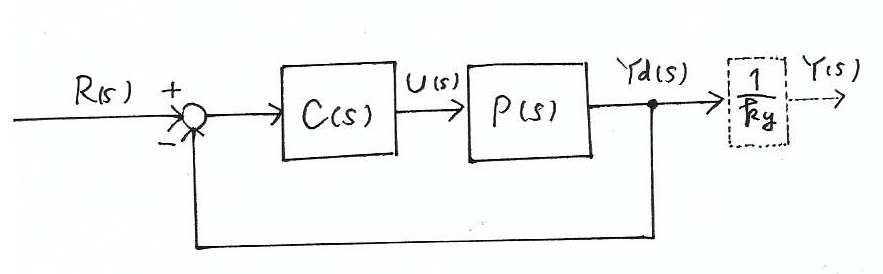 R(s)
+
-
C(s)
U(s)
P(s)
Yd(s)
1
ky
Y(s)